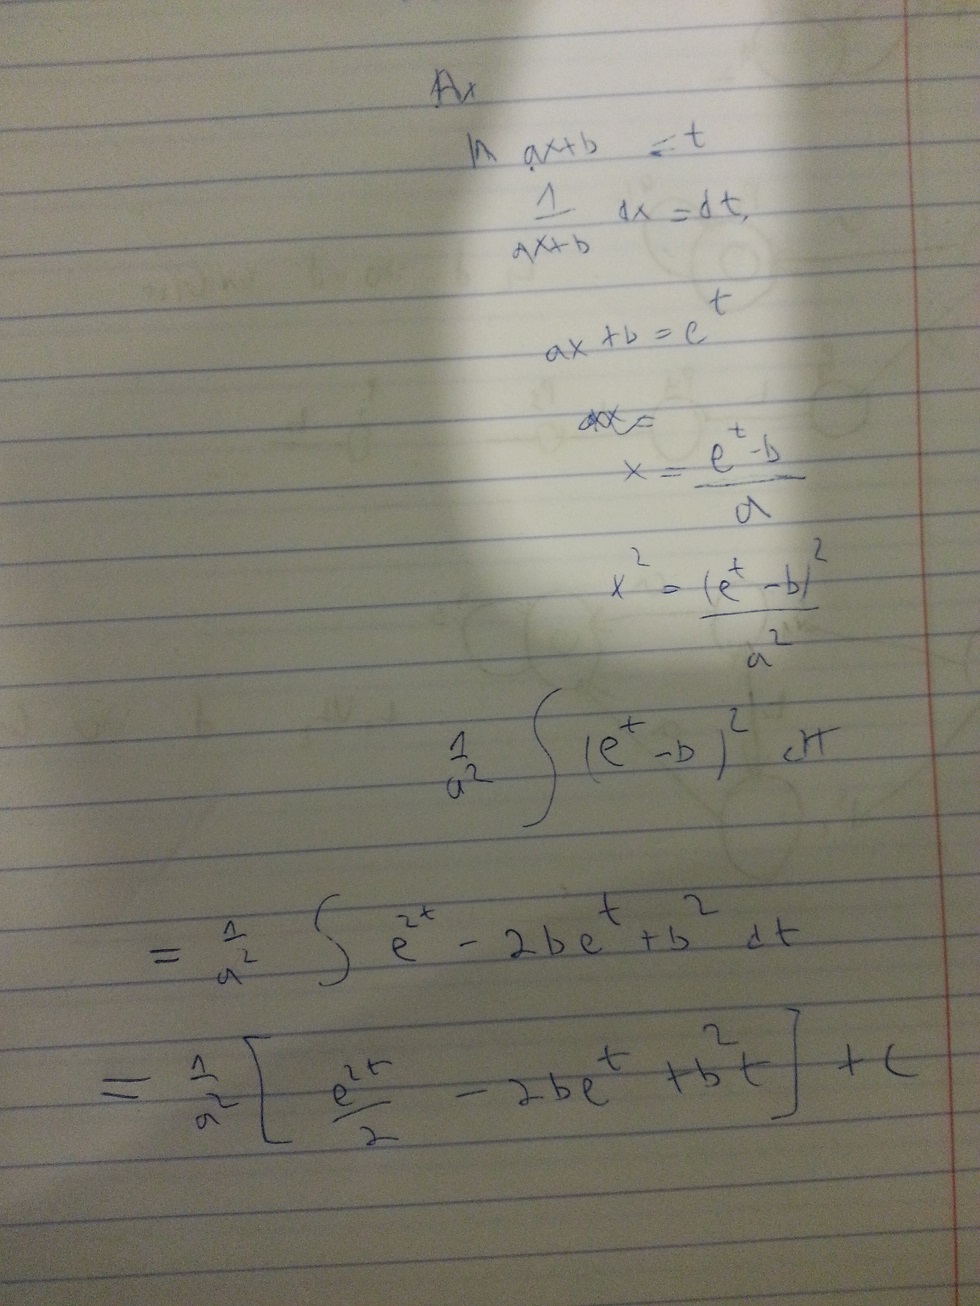 Ax
ln ax+b = t
1/(ax+b) dx = dt,
ax + b = e^t
ax =
x = (e^t - b)/a
x^2 = (e^t - b)^2/a^2
1/a^2 ∫ (e^t - b)^2 dt
= 1/a^2 ∫ e^2t - 2be^t + b^2 dt
= 1/a^2 [ e^2t/2 - 2be^t + b^2 t ] + c